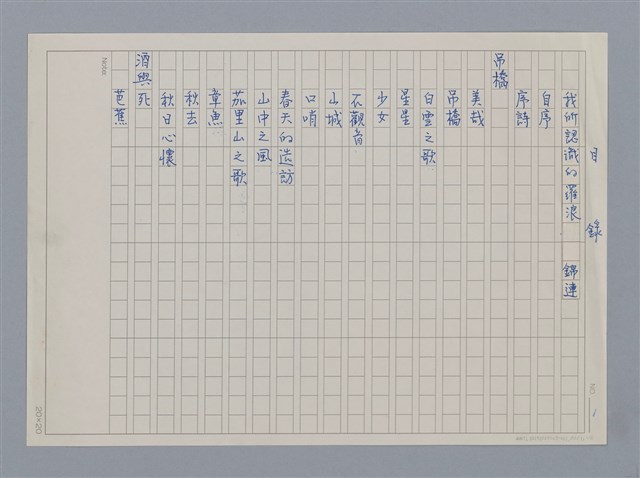 目錄
我所認識的羅浪 錦連
自序
序詩
吊橋
美哉
吊橋
白雲之歌
星星
少女
不觀音
山城
口哨
春天的造訪
山中之風
加里山之歌
章魚
秋去
秋日心懷
酒與死
芭蕉
Note:
NO. 1
20×20